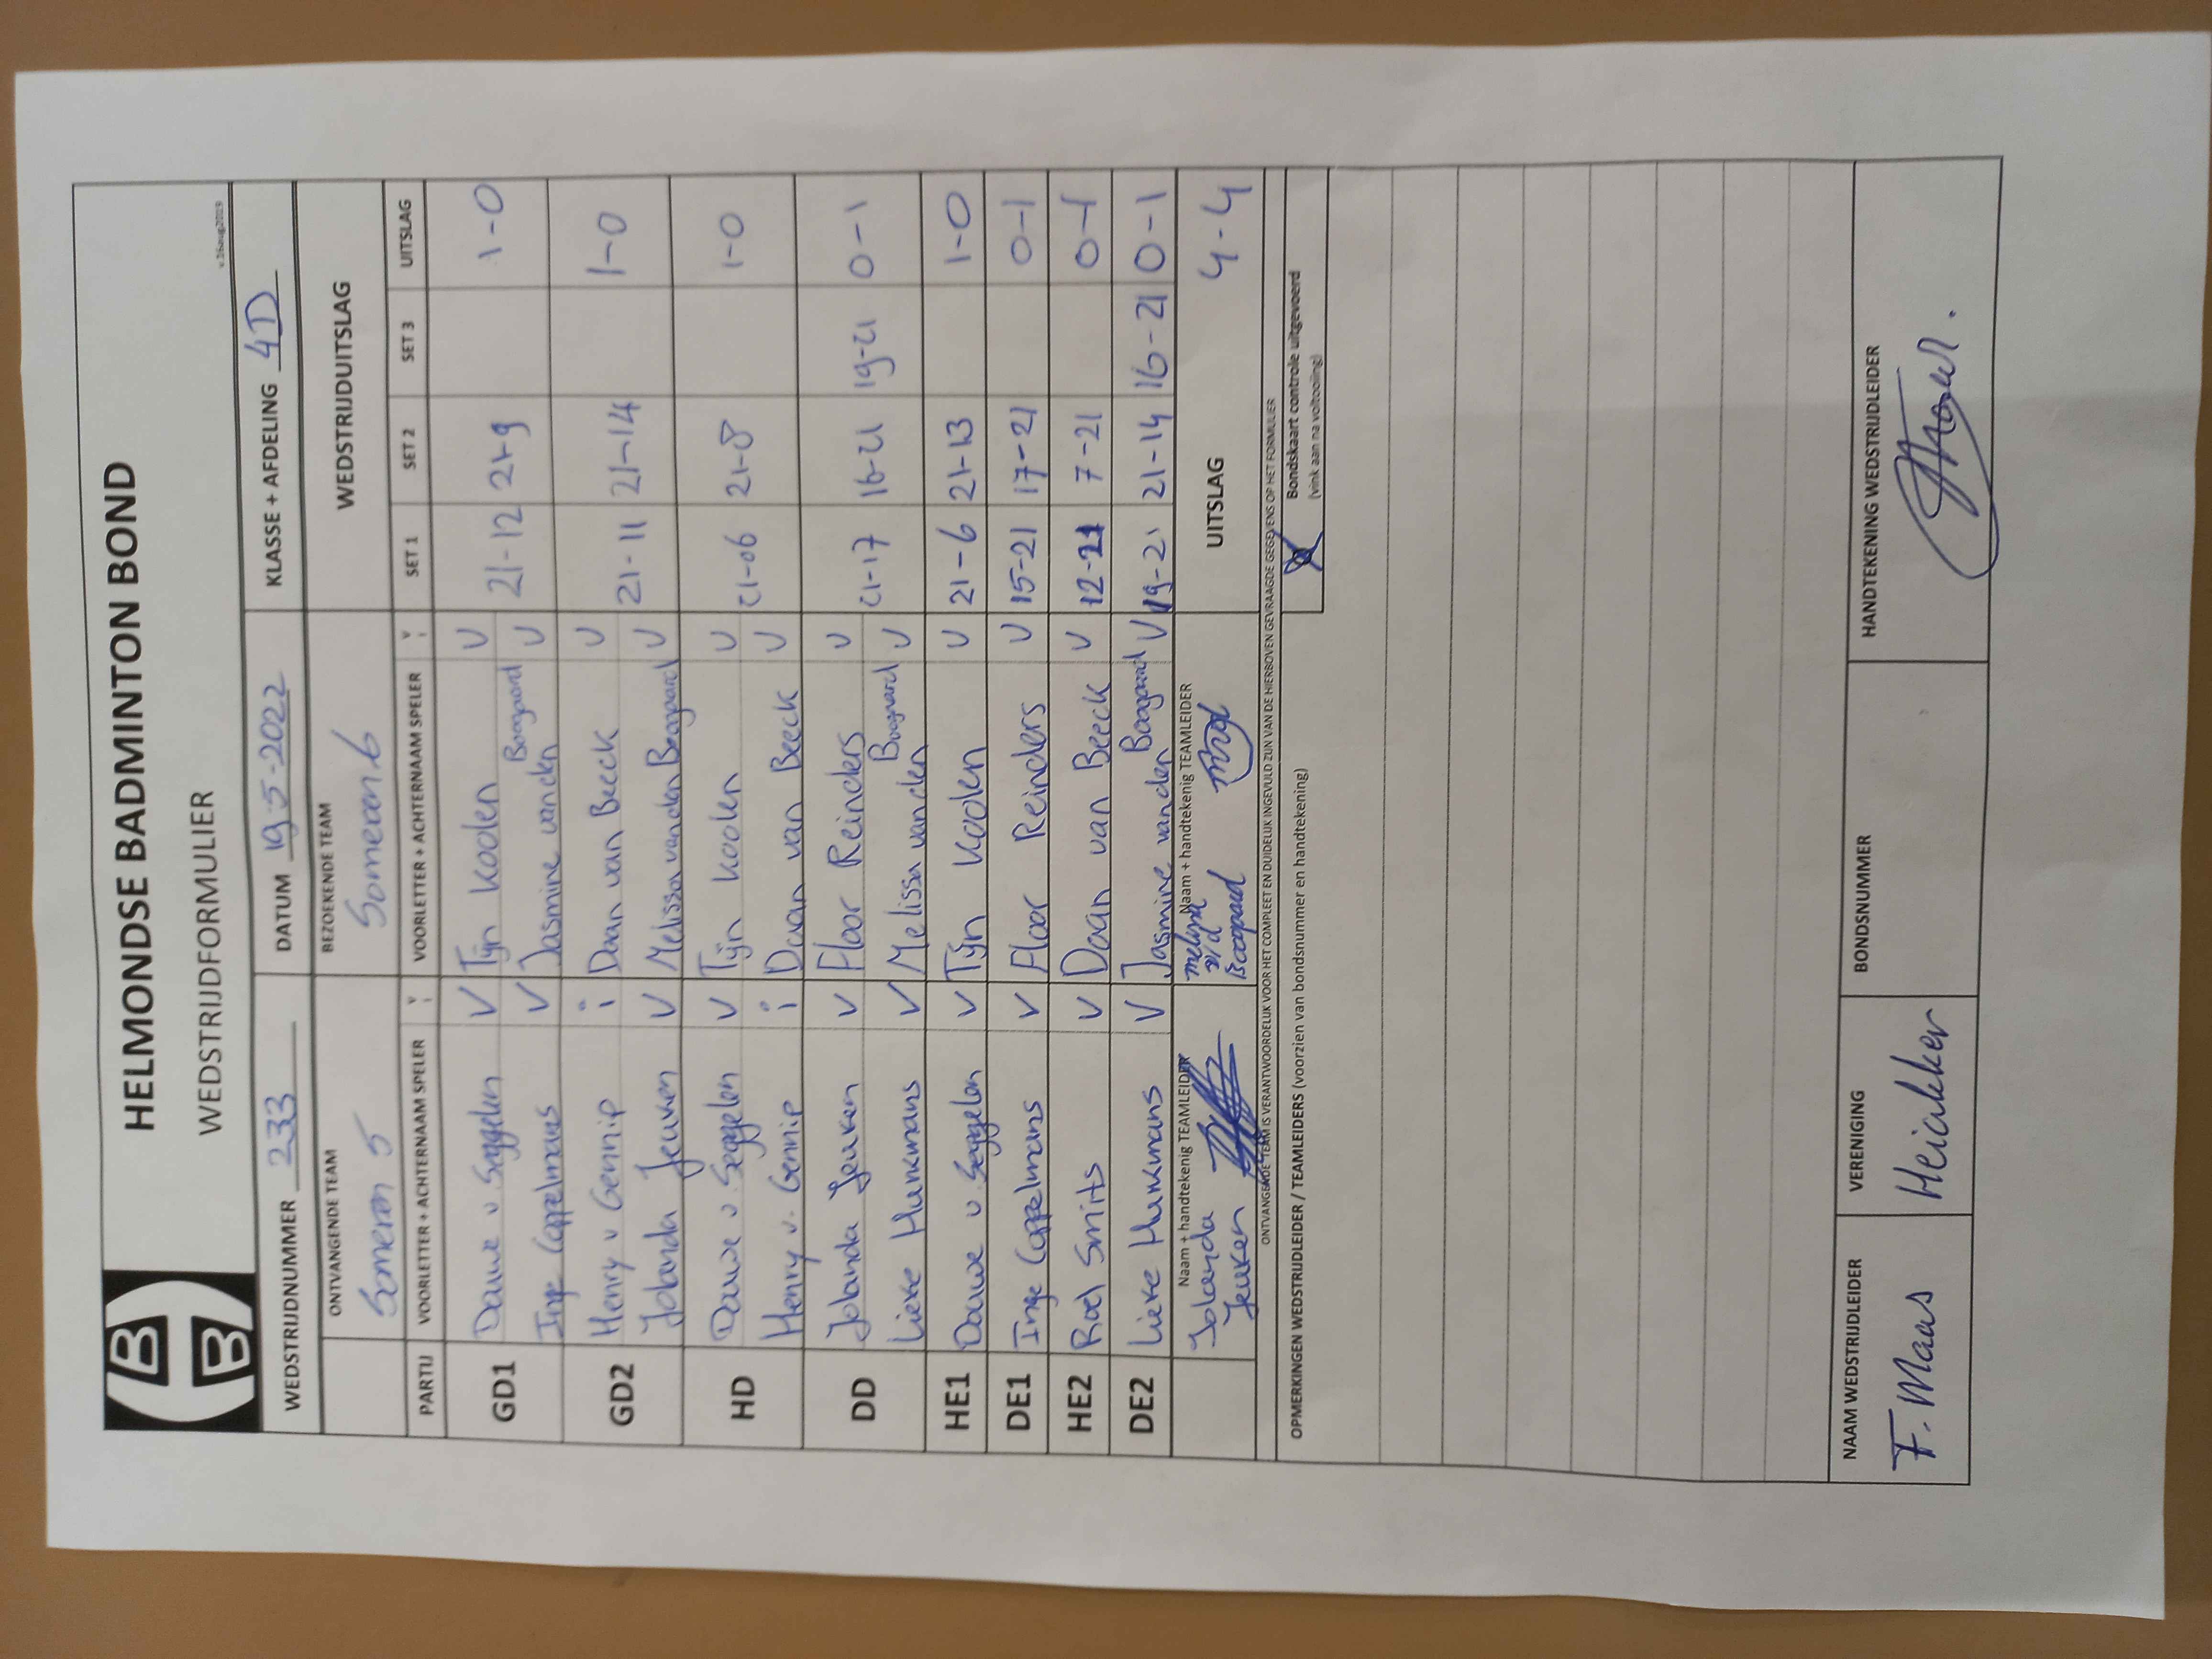 HELMONDSE BADMINTON BOND
WEDSTRIJDFORMULIER
v.16aug2019
WEDSTRIJDNUMMER 233 DATUM 19-5-2022 KLASSE + AFDELING 4D
ONTVANGENDE TEAM BEZOEKENDE TEAM WEDSTRIJDUITSLAG
Someren 5 Someren 6
PARTIJ VOORLETTER + ACHTERNAAM SPELER VOORLETTER + ACHTERNAAM SPELER SET 1 SET 2 SET 3 UITSLAG
GD1 Douwe v Seggelen V Tijn Koolen V 21-12 21-9 1-0
Inge Coppelmans V Jasmine van den Boogaard V
GD2 Henry v Gennip i Daan van Beeck V 21-11 21-14 1-0
Jolanda Jeuken V Melissa van den Boogaard V
HD Douwe v Seggelen V Tijn Koolen V 21-06 21-8 1-0
Henry v. Gennip i Daan van Beeck V
DD Jolanda Jeuken V Floor Reinders V 21-17 16-21 19-21 0-1
Lieke Hurkmans V Melissa van den Boogaard V
HE1 Douwe v Seggelen V Tijn Koolen V 21-6 21-13 1-0
DE1 Inge Coppelmans V Floor Reinders V 15-21 17-21 0-1
HE2 Roel Smits V Daan van Beeck V 12-21 7-21 0-1
DE2 Lieke Hurkmans V Jasmine van den Boogaard V 19-21 21-14 16-21 0-1
Naam + handtekenig TEAMLEIDER Naam + handtekenig TEAMLEIDER UITSLAG 4-4
Jolanda Jeuken v/d Boogaard
ONTVANGENDE TEAM IS VERANTWOORDELIJK VOOR HET COMPLEET EN DUIDELIJK INGEVULD ZIJN VAN DE HIERBOVEN GEVRAAGDE GEGEVENS OP HET FORMULIER
OPMERKINGEN WEDSTRIJDLEIDER / TEAMLEIDERS (voorzien van bondsnummer en handtekening)
Bondskaart controle uitgevoerd
(vink aan na voltooiing)
NAAM WEDSTRIJDLEIDER VERENIGING BONDSNUMMER HANDTEKENING WEDSTRIJDLEIDER
F. Maas Heiakker